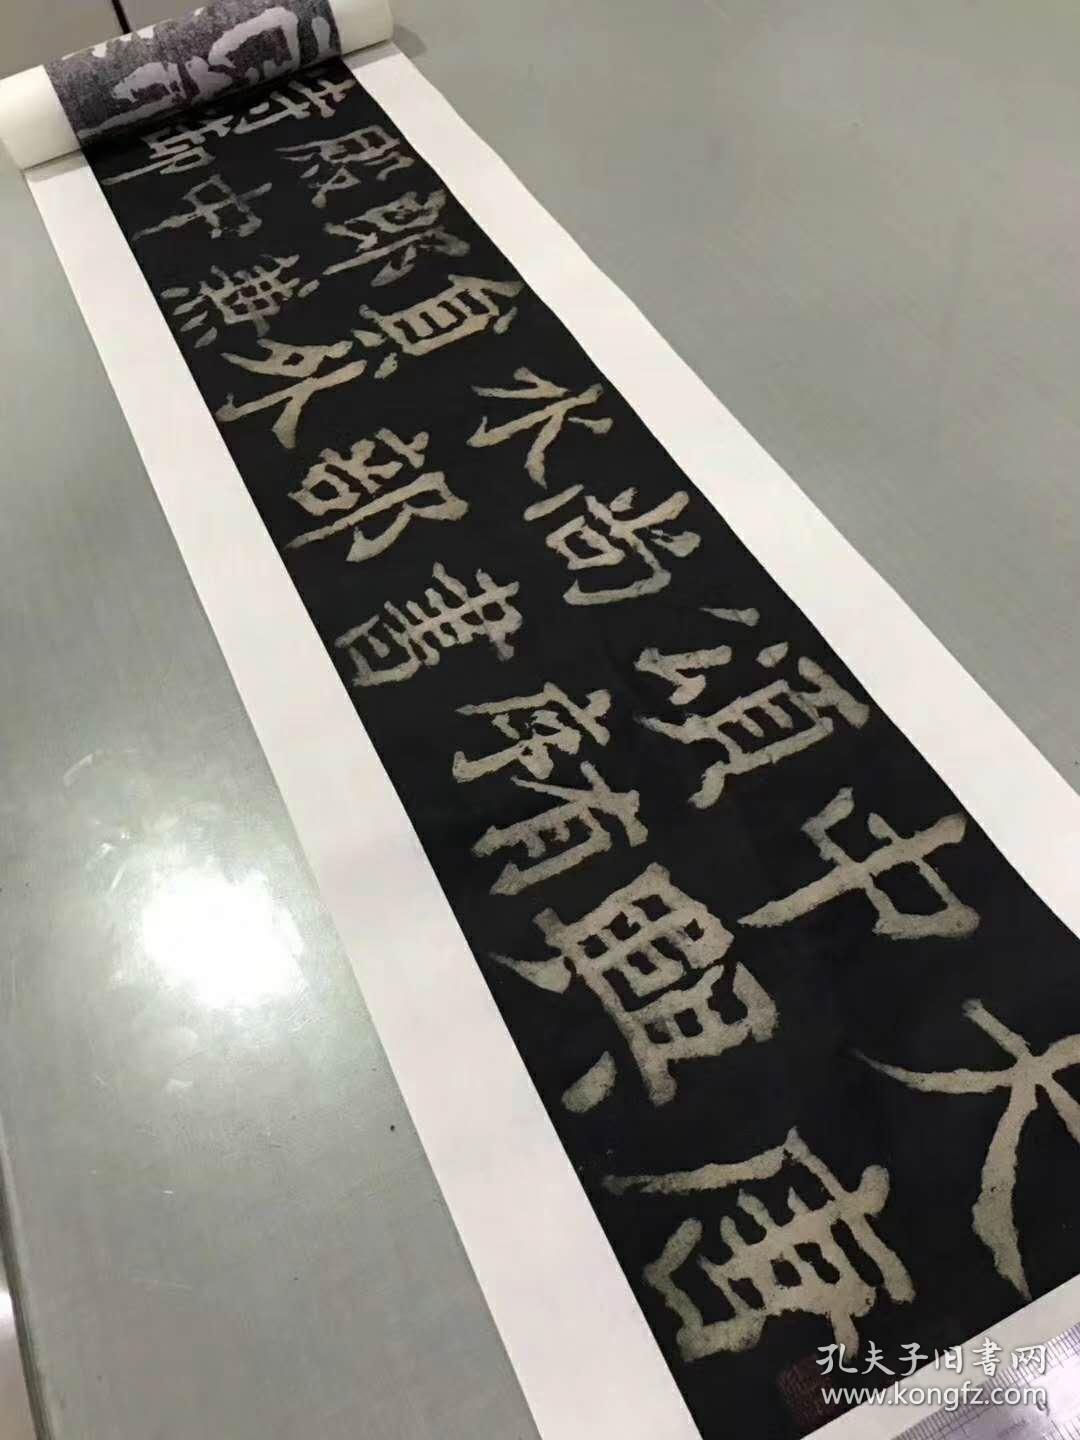 大唐
中興
頌有序
尚書
水部
員外
郎兼
殿中
侍御
孔夫子旧書网
www.kongfz.com